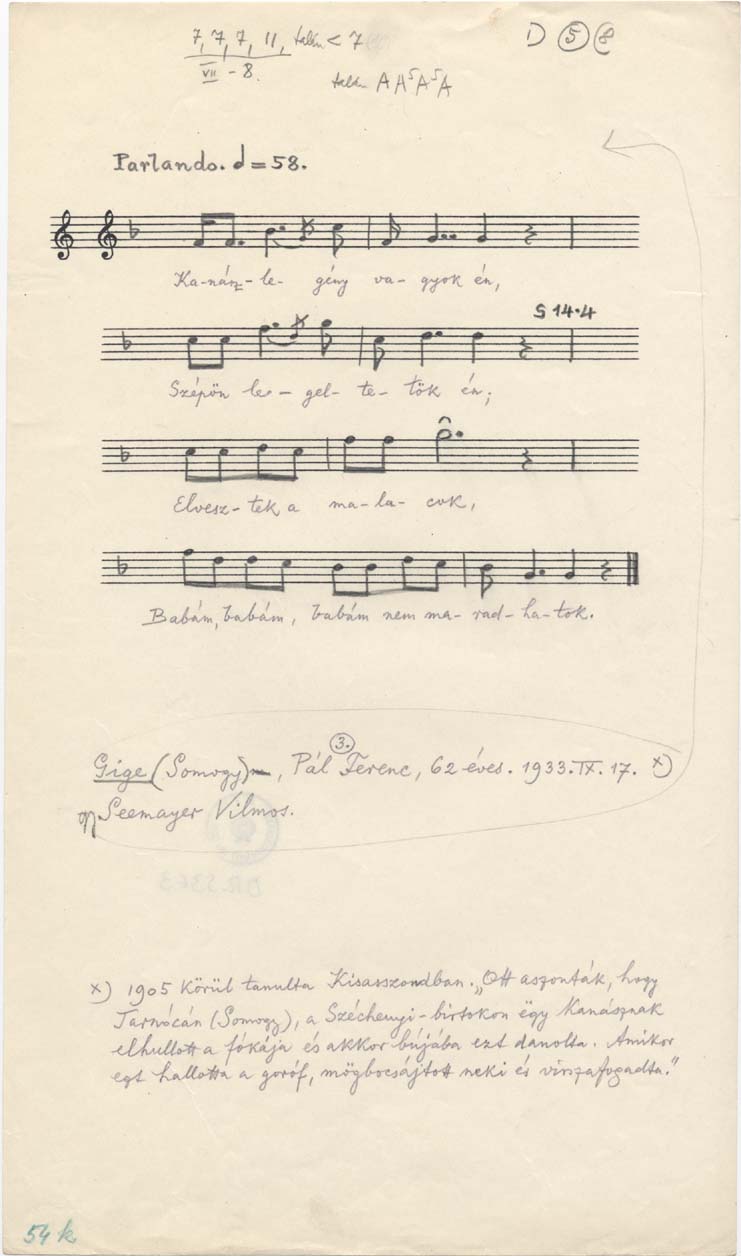 7, 7, 7, 11, talán < 7
VII - 8.
D 5 8
talán A A⁵ A⁵ A
Parlando. = 58.
Ka-nász-le- gény va- gyok én,
§ 14.4
Szépön le- gel- te- tök én;
Elvesz-tek a ma-la- cok,
Babám, babám, babám nem ma- rad- ha-tok.
3.
Gige (Somogy), Pál Ferenc, 62 éves. 1933. IX. 17. x)
Seemayer Vilmos.
x) 1905 körül tanulta Kisasszondban. „Ott aszonták, hogy
Tarnócán (Somogy), a Széchenyi-birtokon ëgy kanásznak
elhullott a fókája és akkor bújába ezt danolta. Amikor
ezt hallotta a goróf, mögbocsájtott neki és viszafogadta."
54 k